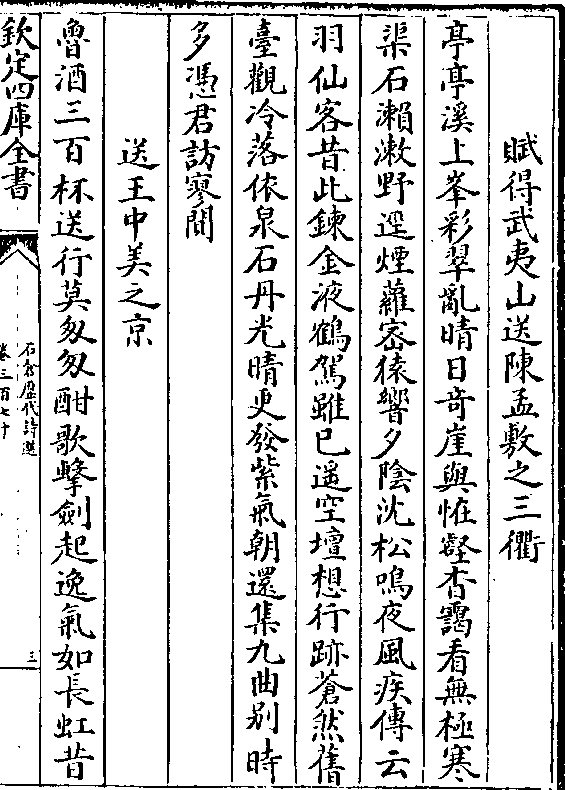 賦得武夷山送陳孟敷之三衢
亭亭溪上峯彩翠亂晴日竒崖與恠壑杳靄看無極寒
渠石瀨漱野逕煙蘿密猿響夕陰沈松鳴夜風疾傳云
羽仙客昔此鍊金液鶴駕雖已遥空壇想行跡蒼然舊
臺觀冷落依泉石丹光晴更發紫氣朝還集九曲别時
多憑君訪寥閴
送王中美之京
魯酒三百杯送行莫匆匆酣歌擊劍起逸氣如長虹昔
欽定四庫全書
石倉歷代詩選
卷三百七十
三